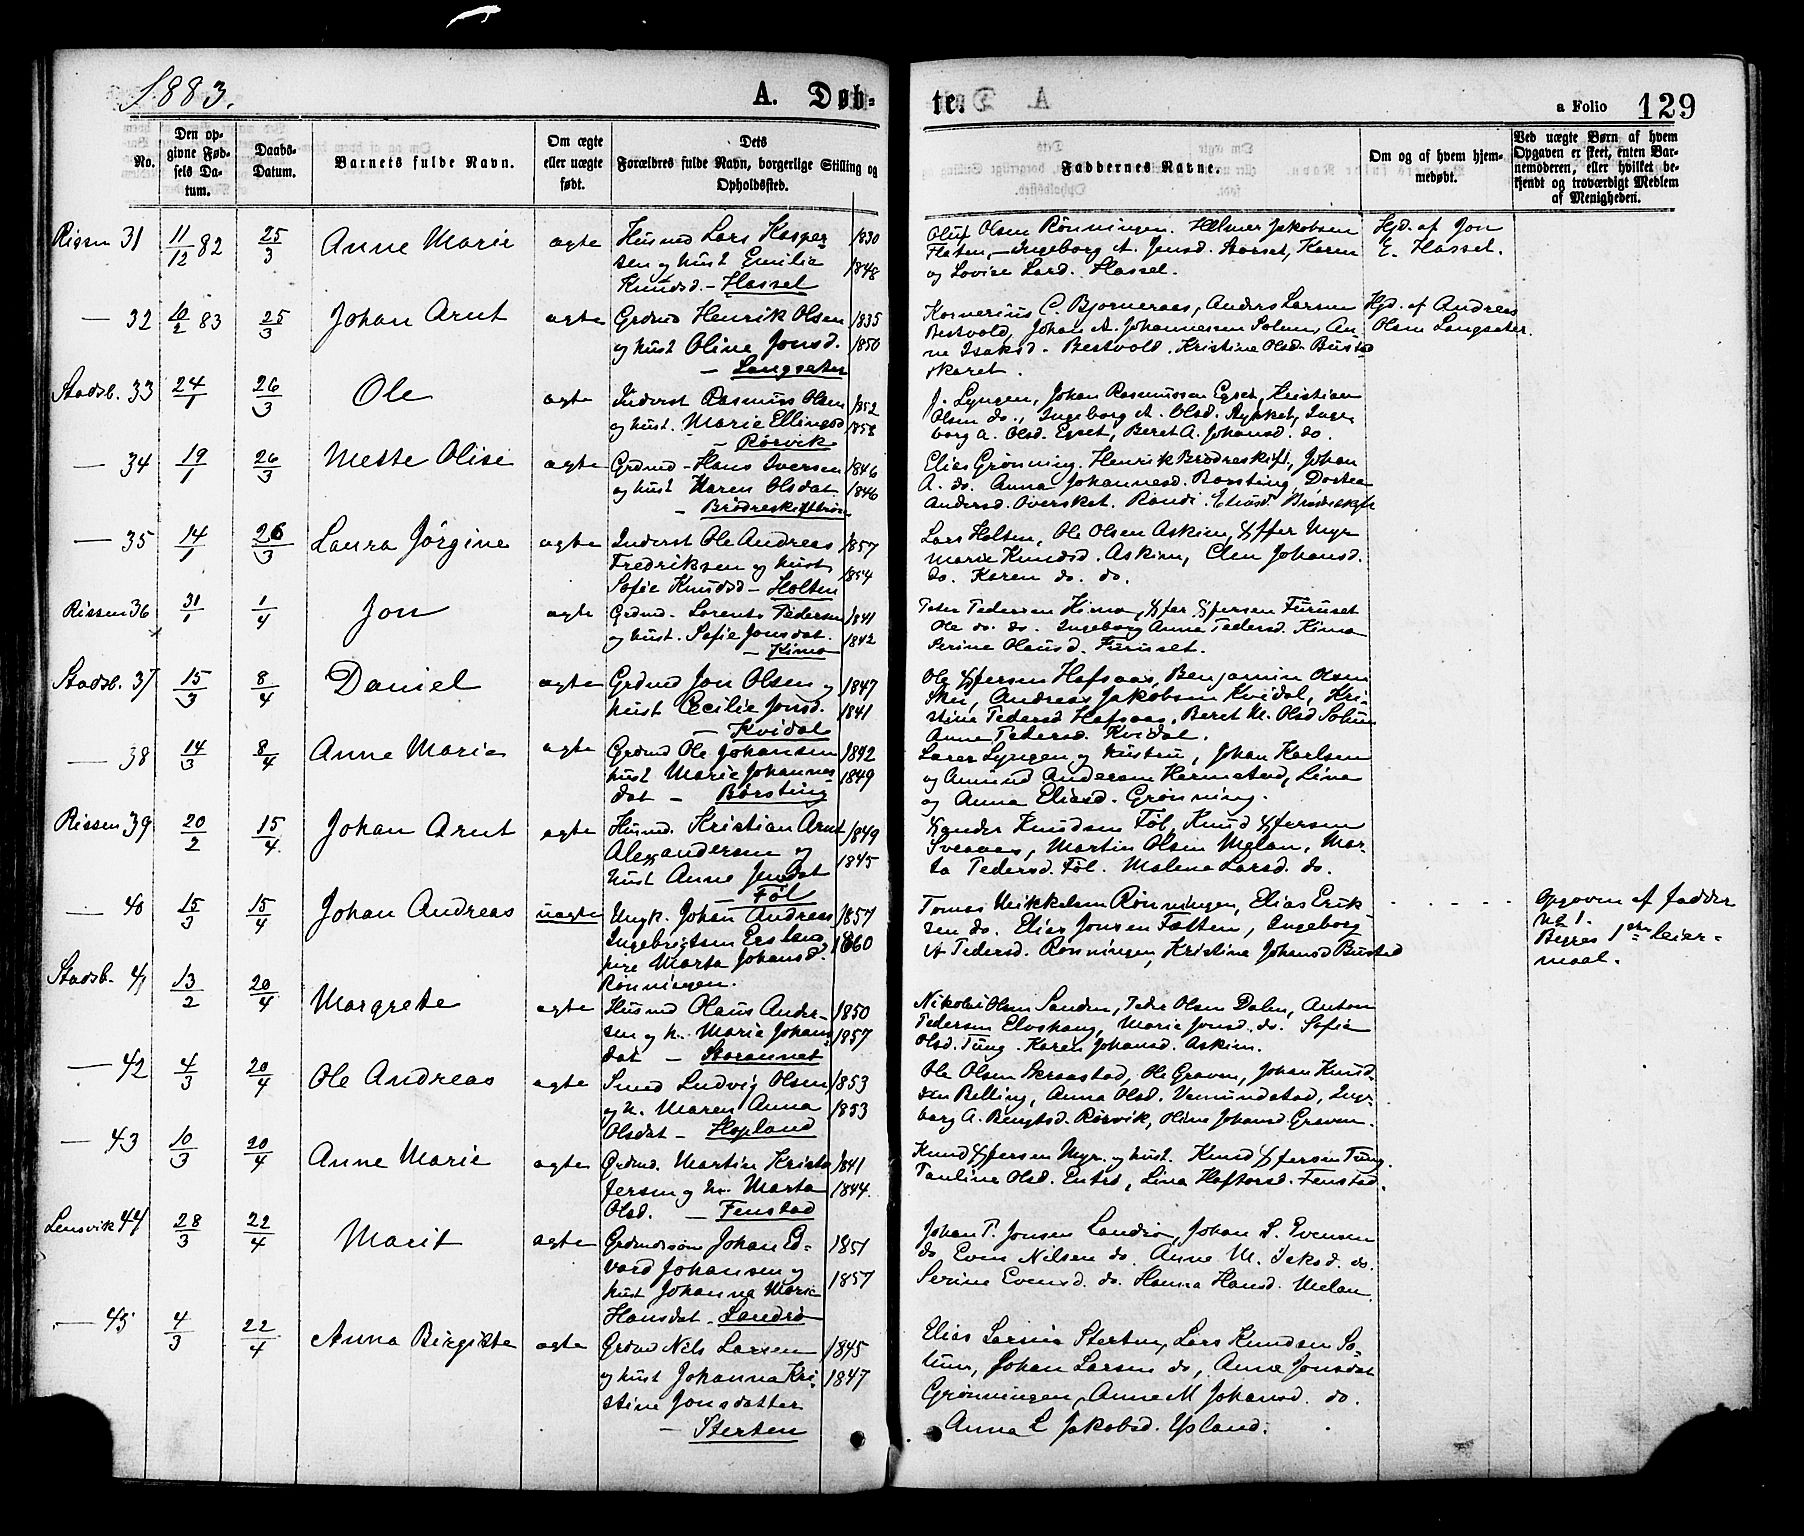 1883.
A. Døb-
te.
a Folio 129
No.
Den op-
givne Fød-
sels Da-
tum.
Daabs-
Datum.
Barnets fulde Navn.
Om ægte
eller uægte
født.
Dets
Forældres fulde Navn, borgerlige Stilling og
Opholdssted.
Faddernes Navne.
Om og af hvem hjem-
medøbt.
Ved uægte Børn af hvem
Opgaven er skeet, enten Bar-
nemoderen, eller hvilket be-
kjendt og troværdigt Medlem
af Menigheden.
Rissen 31 11/12 82 25/3 Anne Marie ægte Husmd Lars Kasper- 1830
sen og hust Emilie 1848
Knudsd. - Hassel
Oluf Olsen Rønningen. Helmer Jakobsen
Flaten, - Ingeborg A. Jensd. Aarset, Karen
og Lovise Lard. Hassel.
Hjd. af Jon
E. Hassel.
— 32 10/2 83 25/3 Johan Arnt ægte Grdmd Henrik Olsen 1835
og hust Oline Jonsd. 1850
- Langsæter
Kornerius C. Bjorneraas, Anders Larsen
Bestvold, Johan A. Johannessen Solem, An-
ne Isaksd. Bestvold. Kristine Olsd. Bustad
skaret.
Hjd. af Andreas
Olsen Langsæter.
Stadsb. 33 24/1 26/3 Ole ægte Inderst Rasmus Olsen 1852
og hust. Marie Ellingsd 1858
- Rørvik
J. Lyngen, Johan Rasmussen Egset, Kristian
Olsen do., Ingeborg A. Olsd. Rykket, Inge-
borg A. Olsd. Egset, Beret A. Johansd. do.
— 34 19/1 26/3 Mette Olise ægte Grdmd - Hans Iversen 1846
og hust Karen Olsdat 1846
- Brødreskiftrøn
Elias Grønning. Henrik Brødreskift, Johan
A. do. Anna Johannesd. Børsting Dortea
Andersd. Oversket. Randi Eliasd. Brødreskift
— 35 14/1 26/3 Laura Jørgine ægte Inderst Ole Andreas 1857
Fredriksen og hust 1854
Sofie Knudsd - Holten
Lars Holten, Ole Olsen Askim, Efter Myr
Marie Knudsd. Askim, Elen Johansd.
do. Karen do. do.
Rissen 36 31/1 1/4 Jon ægte Grdmd. Lorents Pedersen 1841
og hust. Sofie Jonsdat. 1842
- Kimo
Peter Pedersen Kimo, Furuset
Ole do. do. Ingeborg Anna Pedersd. Kimo
Serine Olausd. Furuset.
Stadsb. 37 15/3 8/4 Daniel ægte Grdmd Jon Olsen og 1847
hust Cecilie Jonsd. 1841
- Kvidal
Ole Hofsaas, Benjamin Olsen
Skei, Andreas Jakobsen Kvidal, Kri-
stine Pedersd Hofsaas, Beret M. Olsd
Anne Pedersd. Kvidal.
— 38 14/3 8/4 Anne Marie ægte Grdmd Ole Johansen 1842
hust Marie Johannes- 1849
dat - Børsting
Lærer Lyngen og hustru, Johan Karlsen
og Amund Andersen Hermstad, Lina
og Anna Eliasd. Grønning.
Rissen 39 20/2 15/4 Johan Arnt ægte Husmd. Kristian Arnt 1849
Alexandersen og 1845
hust Anne Jensdat
- Føl
Knudsen Føl, Knud
Sveaas, Martin Olsen Melan, Mar-
ta Pedersd. Føl. Malene Larsd. do.
— 40 15/3 15/4 Johan Andreas uægte Ungk. Johan Andreas 1857
Ingebrigtsen Ersland 1860
pige Marta Johansd.
Rønningen.
Tomas Mikkelsen Rønningen, Elias Erik-
sen do. Elias Jonsen Fætten, Ingeborg
A Pedersd. Rønningen, Kristine Johansd Bustad
Opgaven af fadder
No 1.
Begges 1ste leier-
maal.
Stadsb. 41 13/2 20/4 Margrete ægte Husmd Olaus Ander- 1850
sen og h. Marie Johans- 1857
dat - Storannet
Nikolai Olsen Sanden, Peder Olsen Dalen, Anton
Pedersen Elvshaug, Marie Jonsd. do. Sofie
Olsd. Tung. Karen Johansd. Askim.
— 42 4/3 20/4 Ole Andreas ægte Smed Ludvig Olsen 1853
og h. Maren Anna 1853
Olsdat - Hopland
Ole Olsen Skraastad, Ole Graven, Johan Knud-
sen Belling, Anna Olsd. Vemundstad, Inge-
borg A. Bengtsd. Rørvik, Oline Johansd. Graven.
— 43 10/3 20/4 Anne Marie ægte Grdmd. Martin Kristo- 1841
fersen og h. Marta 1844.
Olsd. - Fenstad
Knud Myr. og hust. Knud Tung.
Pauline Olsd. Entrø, Lina Haftorsd. Fenstad.
Lensvik 44 28/3 22/4 Marit ægte Grdmdssøn Johan Ed- 1851
vard Johansen og 1857
hust Johanna Marie
Hansdat - Landrø
Johan P. Jonsen Landrø, Johan L. Evensen
do Even Nilsen do. Anne M. Isaksd. do.
Serine Evensd. do. Hanna Hansd. Melan.
— 45 4/3 22/4 Anna Birgitte ægte Grdmd Nils Larsen 1845
og hust Johanna Kri- 1847
stine Jonsdatter
- Sterten
Elias Larsen Sterten, Lars Knudsen So-
lum, Johan Larsen do, Anne Jonsdat
Grønningen, Anne M Johansd. do.
Anna E Jakobsd. Opland.